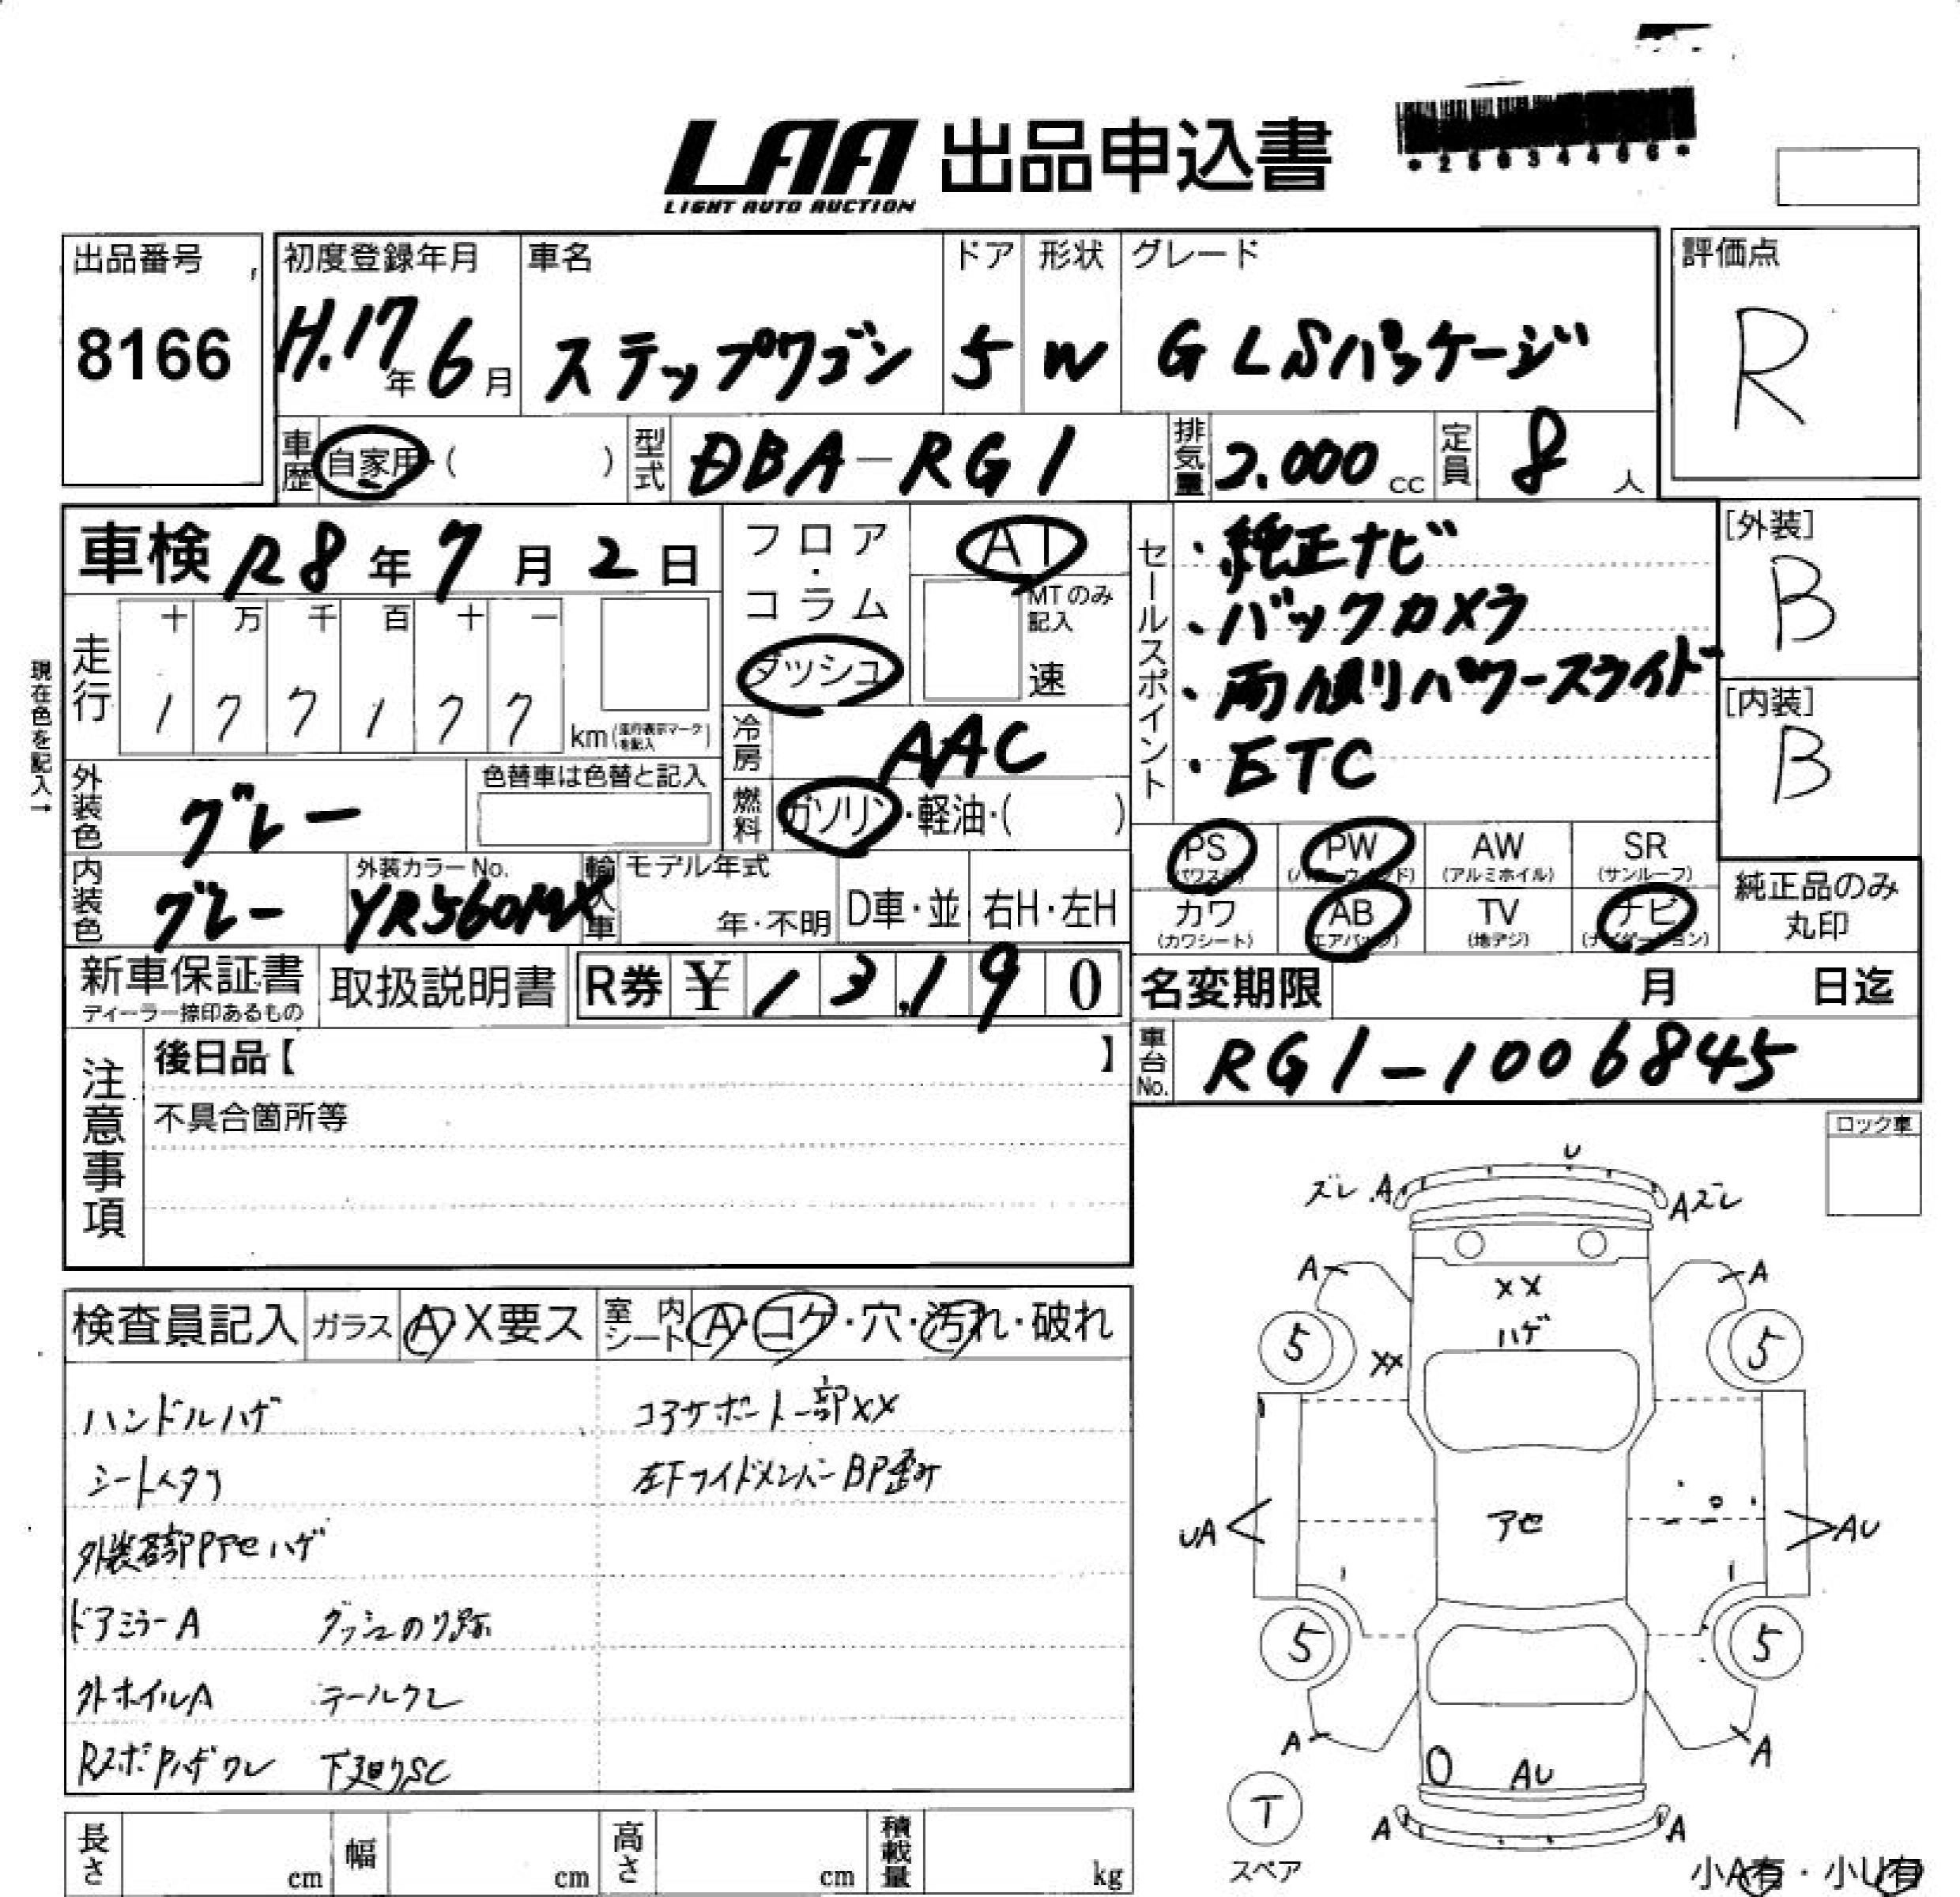 LAA 出品申込書
LIGHT AUTO AUCTION
*25034466*
出品番号
8166
初度登録年月
H.17年6月
車名
ステップワゴン
ドア
5
形状
W
グレード
G LSパッケージ
評価点
R
車歴
自家用・( )
型式
DBA-RG1
排気量
2.000 cc
定員
8 人
車検 R8年7月2日
フロア・コラム
ダッシュ
AT
MTのみ記入
速
セールスポイント
・純正ナビ
・バックカメラ
・両側パワースライド
・ETC
[外装]
B
[内装]
B
現在色を記入→
走行
十 万 千 百 十 一
1 7 7 1 7 7
km(走行表示マークを記入)
冷房
AAC
燃料
ガソリン・軽油・( )
外装色
グレー
色替車は色替と記入
内装色
グレー
外装カラーNo.
YR560MX
輸入車
モデル年式
年・不明
D車・並
右H・左H
PS
(パワステ)
PW
(パワーウインド)
AW
(アルミホイル)
SR
(サンルーフ)
カワ
(カワシート)
AB
(エアバック)
TV
(地デジ)
ナビ
(ナビゲーション)
純正品のみ
丸印
新車保証書
ディーラー捺印あるもの
取扱説明書
R券 ¥ 13,190
名変期限 月 日迄
車台No.
RG1-1006845
注意事項
後日品【 】
不具合箇所等
ロック車
検査員記入
ガラス
A X要ス
室内シート
A・コゲ・穴・汚れ・破れ
ハンドルハゲ
コアサポート一部XX
シートヘタリ
左Fサイドメンバー BP歪み
外装各部Pアセハゲ
ドアミラーA
ダッシュのり跡
外ホイルA
テールクレ
RスポPハゲワレ
下廻りSC
U
ズレ A
Aズレ
A
A
XX
ハゲ
5
XX
5
UA
アセ
AU
5
5
A
O
AU
A
T
スペア
A
A
小A有・小U有
長さ cm
幅 cm
高さ cm
積載量 kg